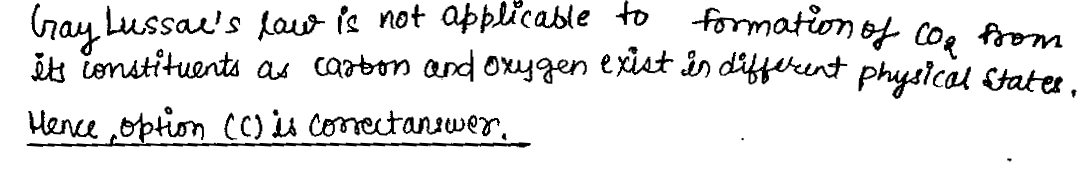 Gay Lussac's law is not applicable to formation of CO2 from
its constituents as carbon and oxygen exist in different physical states.
Hence, option (C) is correct answer.